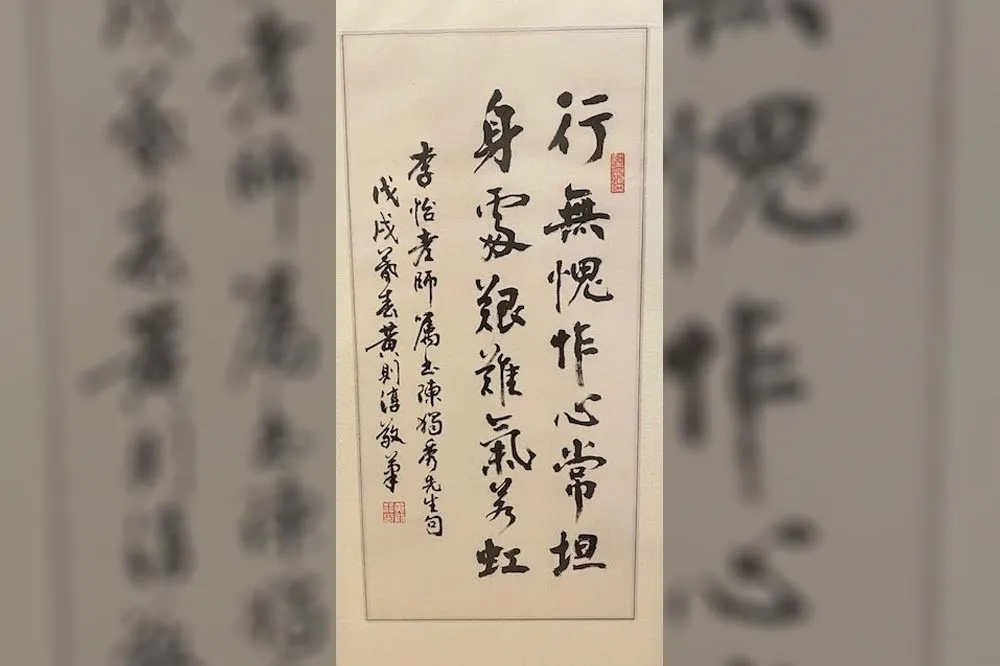 行無愧怍心常坦
身處艱難氣若虹
李怡老師屬書陳獨秀先生句
戊戌暮春黃則淳敬筆